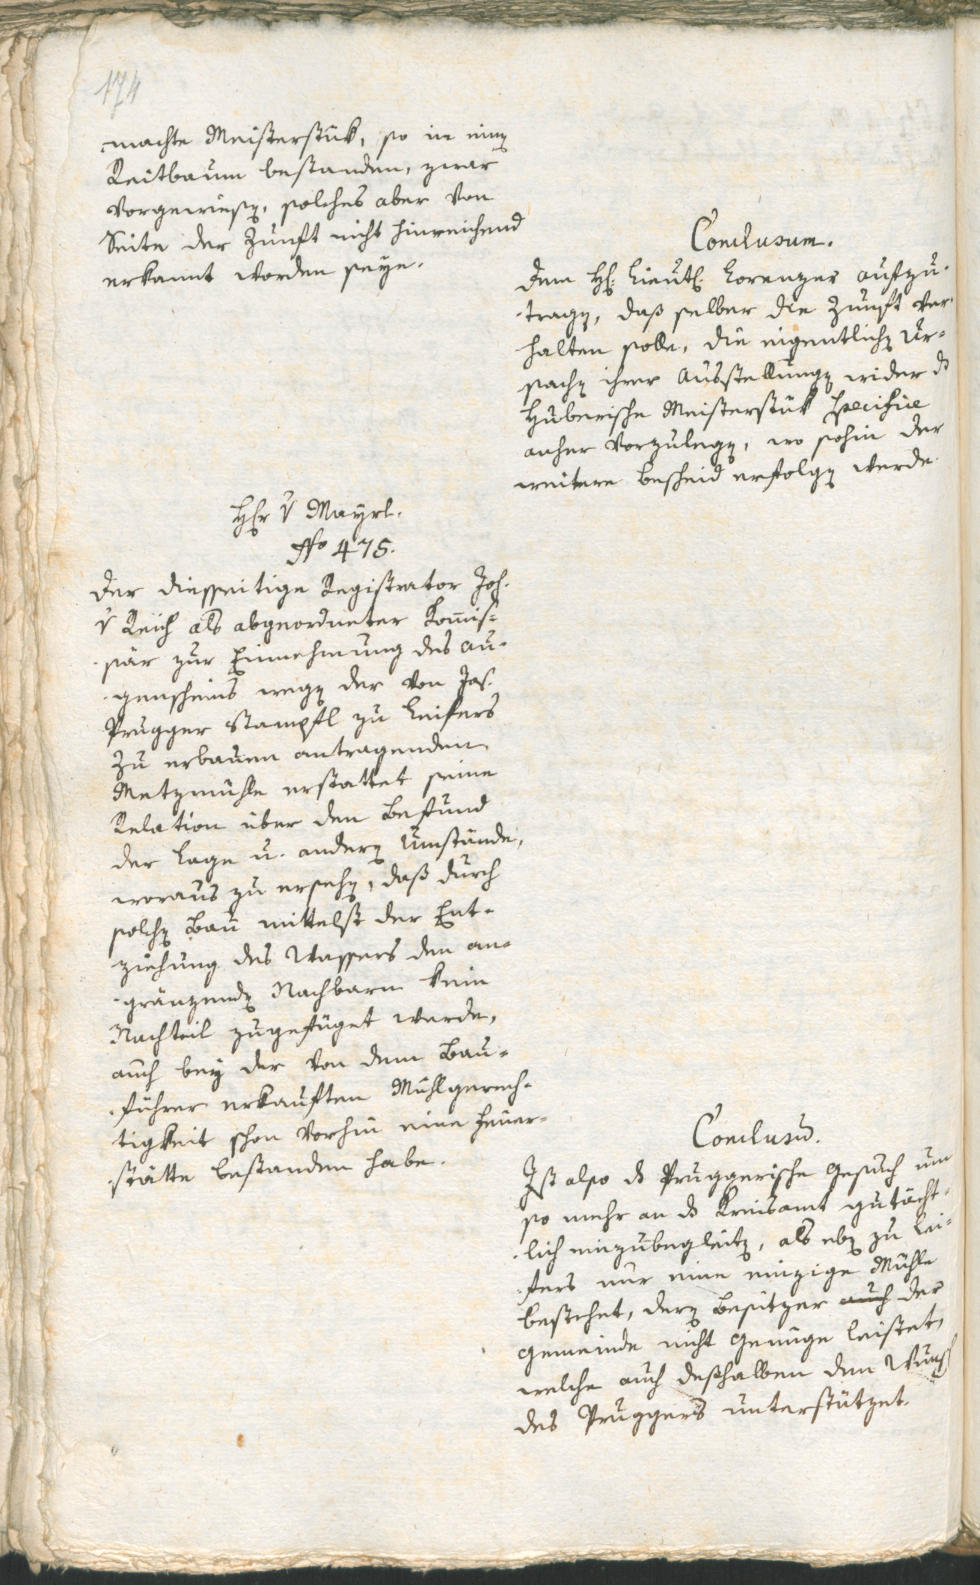 174
machte Meisterstük, so in einē
Reitbaum bestanden, zwar
vorgewiesē, solches aber von
Seite der Zunft nicht hinreichend
erkannt worden seye.
Conclusum.
Dem H: Lieut: Lorenzer aufzu-
tragē, daß selber die Zunft ver-
halten solle, die eigentlichē Ur-
sachē ihrer Ausstellungē wider ds
Huberische Meisterstük specifice
anher vorzulegē, wo sohin der
weitere Bescheid erfolgē werde.
Hr v Mayrl.
No 475.
Der diesseitige Registrator Joh.
v Reich als abgeordneter Kom̅is-
sär zur Einnehmung des Au-
genscheins wegē der von Jos.
Prugger Stampfl zu Leifers
zu erbauen antragenden
Metzmühle erstattet seine
Relation über den Befund
der Lage u. anderē Umstände,
woraus zu ersehē, daß durch
solchē Bau mittelst der Ent-
ziehung des Wassers den an-
gränzendē Nachbarn kein
Nachteil zugefüget werde,
auch bey der von dem Bau-
führer erkauften Mühlgerech-
tigkeit schon vorhin eine Feuer-
stätte bestanden habe.
Conclusū.
Ist also ds Pruggerische Gesuch um
so mehr an ds Kreisamt gutächt-
lich einzubegleitē, als ebē zu Lei-
fers nur eine einzige Mühle
bestehet, derē Besitzer auch der
Gemeinde nicht Genüge leistet,
welche auch deßhalben den Wunsch
des Pruggers unterstützet.